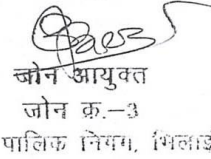 जोन आयुक्त
जोन क्र.–3
पालिक निगम, भिलाई